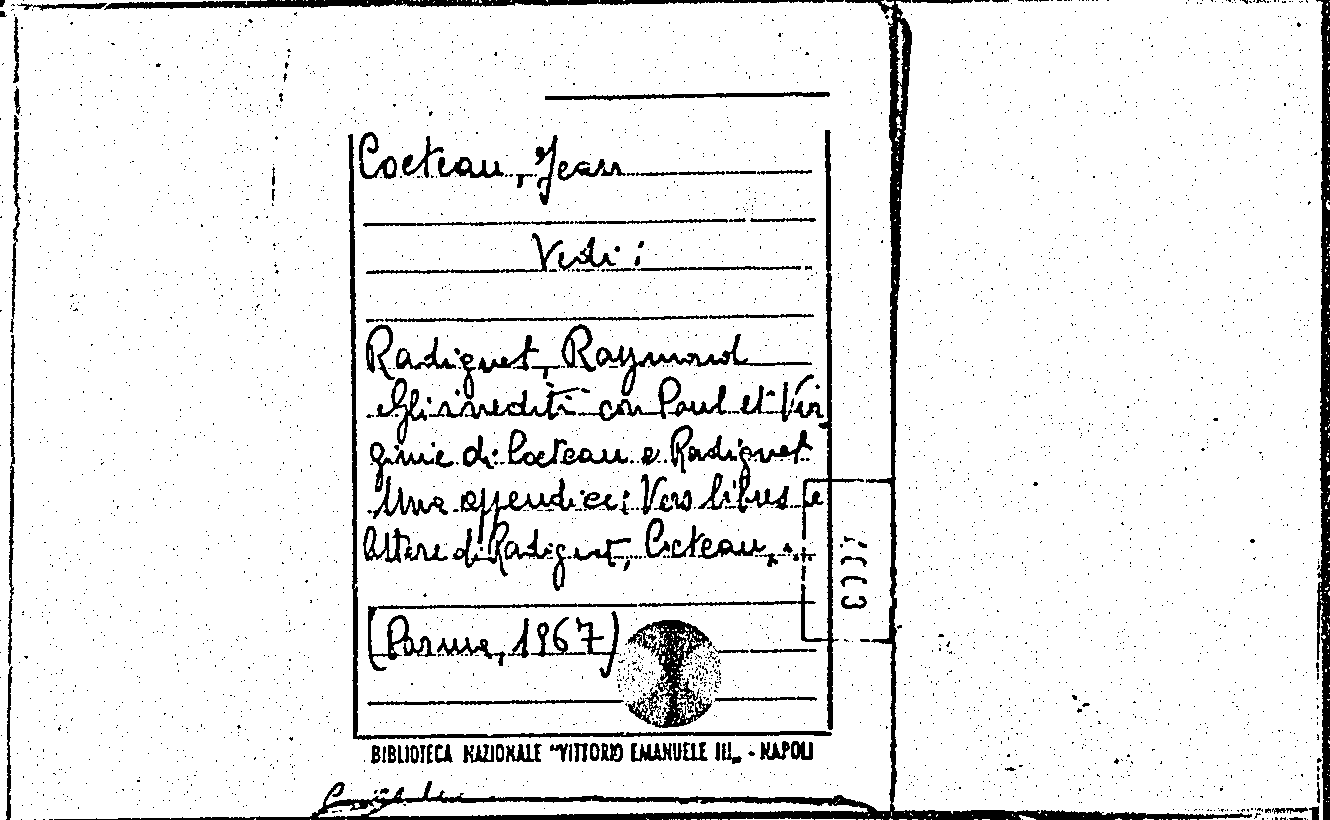 Cocteau, Jean
Vedi:
Radiguet, Raymond
Gli inediti con Paul et Vir
ginie di Cocteau e Radiguet
Una appendice: Vers libres e
lettere di Radiguet, Cocteau,...
(Parma, 1967)
BIBLIOTECA NAZIONALE "VITTORIO EMANUELE III„ - NAPOLI